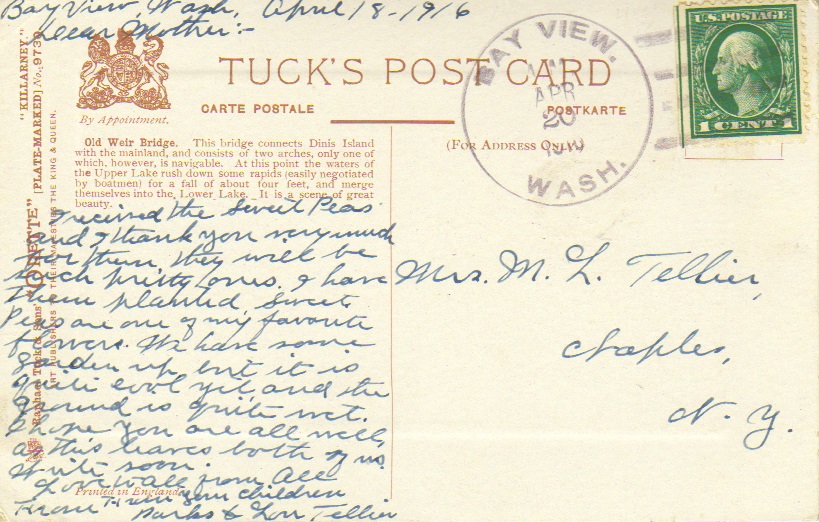 Bay View, Wash, April 18-1916
Dear Mother:-
By Appointment.
TUCK'S POST CARD
CARTE POSTALE
POSTKARTE
(FOR ADDRESS ONLY)
BAY VIEW.
APR
20
WASH.
U.S. POSTAGE
1 CENT 1
"KILLARNEY."
[PLATE-MARKED] No. 9739
Raphael Tuck & Sons' "OILETTE"
ART PUBLISHERS TO THEIR MAJESTIES THE KING & QUEEN.
Old Weir Bridge. This bridge connects Dinis Island
with the mainland, and consists of two arches, only one of
which, however, is navigable. At this point the waters of
the Upper Lake rush down some rapids (easily negotiated
by boatmen) for a fall of about four feet, and merge
themselves into the Lower Lake. It is a scene of great
beauty.
I received the Sweet Peas
and I thank you very much
for them they will be
such pretty ones. I have
them planted Sweet
Peas are one of my favorite
flowers. We have some
garden up but it is
quite cool yet and the
ground is quite wet.
I hope you are all well,
as this leaves both of us
Write soon.
Love to all from All
From your children
Parks & Lou Tellier
Printed in England
Mrs. M. L. Tellier,
Naples,
N. Y.